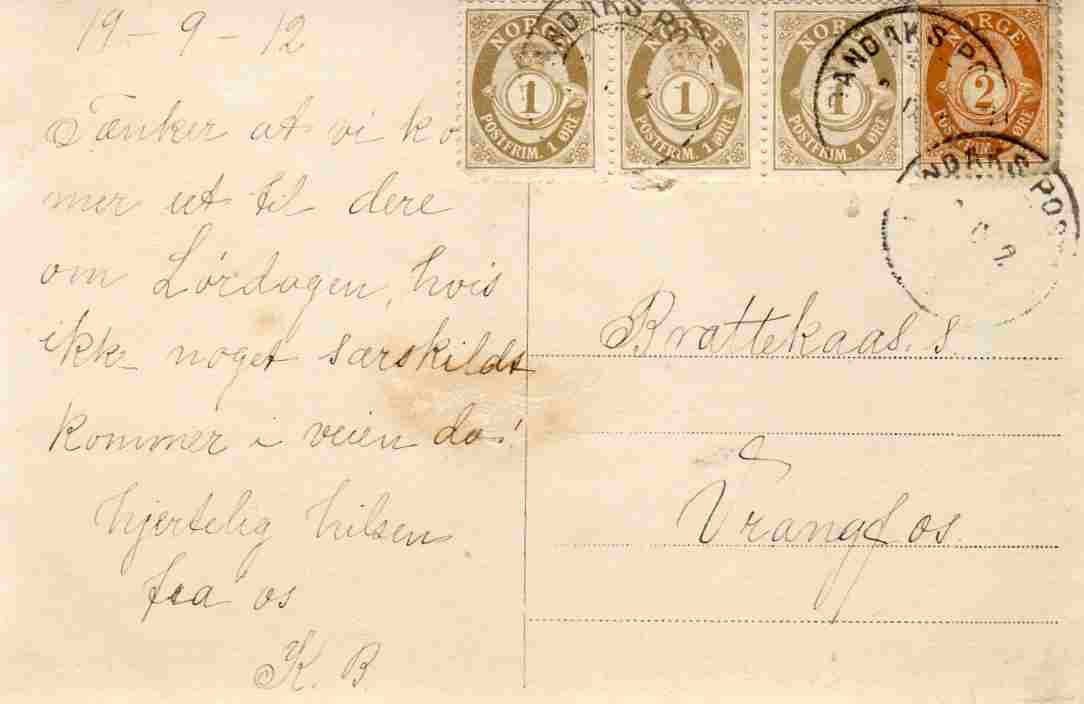 19 - 9 - 12
Tænker at vi ko
mer ut til dere
om Lørdagen, hvis
ikke noget særskildt
kommer i veien da!
hjertelig hilsen
fra os
K. B.
NORGE 1 POSTFRIM. 1 ØRE
NORGE 1 POSTFRIM. 1 ØRE
1 POSTFRIM. 1 ØRE
NORGE 2 ØRE
NDAKS PO
ANDAKS P
NDAKS POS
Brattekaas. s.
Vrangfos.